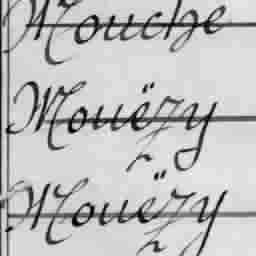 Mouche
Mouëzy
Mouëzy